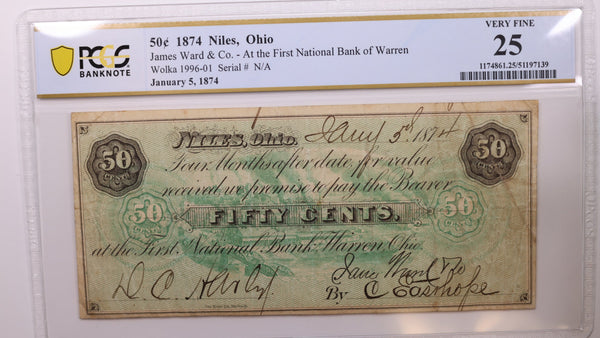 PCGS
BANKNOTE
50¢ 1874 Niles, Ohio
James Ward & Co. - At the First National Bank of Warren
Wolka 1996-01 Serial # N/A
January 5, 1874
VERY FINE
25
1174861.25/51197139
NILES, Ohio. Jany 5th 1874
50 CENTS
50 CENTS
Four Months after date, for value
received we promise to pay the Bearer
50 CENTS
50 CENTS
FIFTY CENTS.
at the First National Bank Warren Ohio.
James Ward & Co
D. C.
By C Easthope